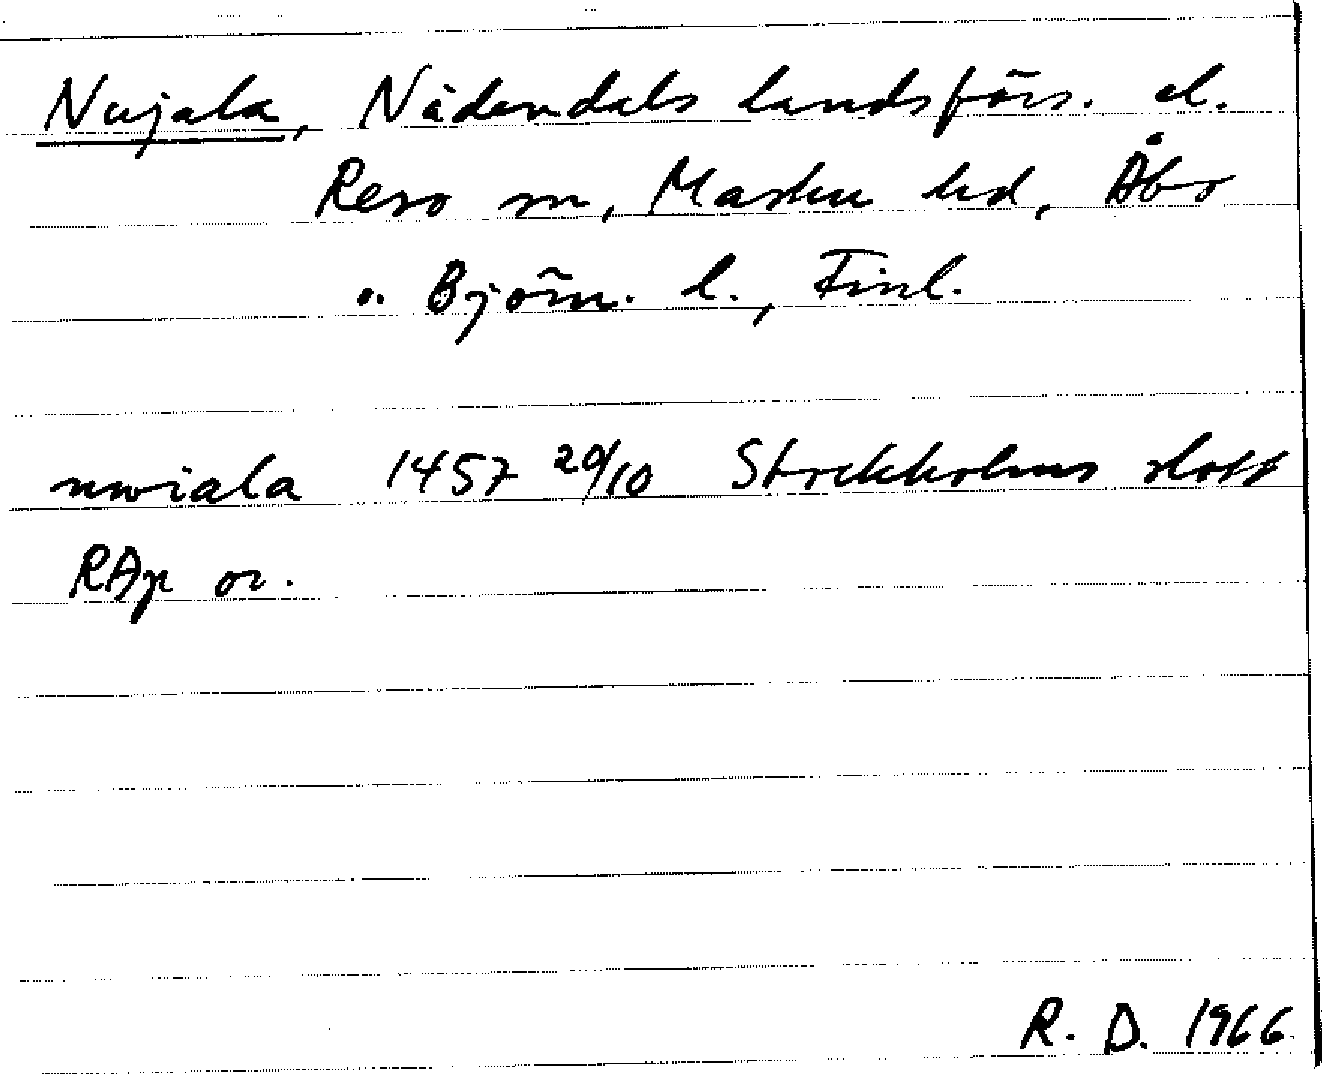 Nujala, Nådendals landsförs. el.
Reso sn, Masku hd, Åbo
o. Björn. l., Finl.
nwiala 1457 20/10 Stockholms slott
RAp or.
R. D. 1966